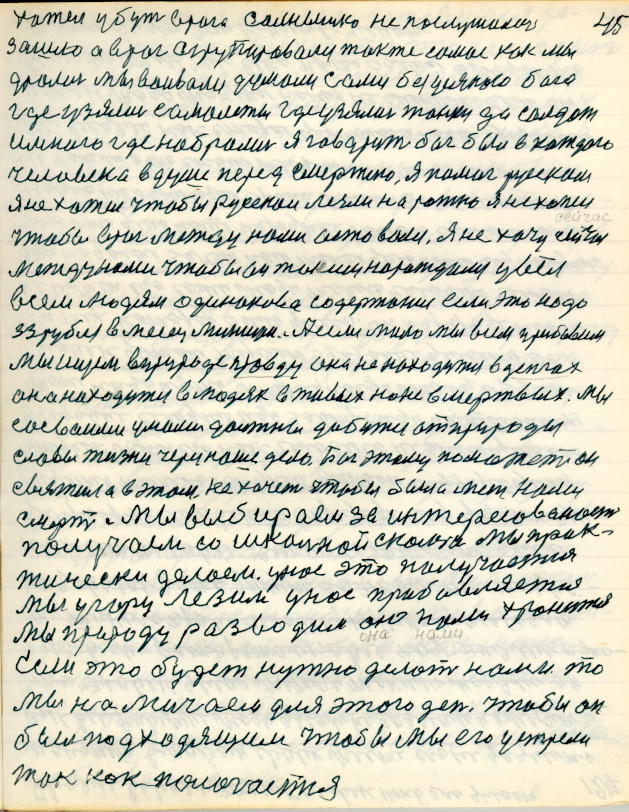 хотел убут врага Солнышко не послушалос 45
зашло а враг сгрупировали также само как мы
дрались мы воивали думали сами без всякого бога
где узяли самолоты где узяли танки за солдат
и много где набрались Я говарит бог был в каждого
человека в душе перед смертю, я помог русским
я не хотел чтобы русскои лезли на рожно я не хотел
чтобы враг между нами оставали. я не хочу сейчас
сейчас
между нами чтобы он таким нарождался
всем людям одинакова содержание если это надо
33 рубля в месец. А если мало мы всем прибавим
мы ищем в природе правду она не находится в денгах
она находится в людях в живых но не в мертвых. Мы
своваими умами должны добится от природы
славы жизни через наше дело Бог этому поможет он
святиля в этом, не хочет чтобы была меж нами
смерть. Мы выбираем за интересованост
получаем со школьной скамта Мы прак-
тически делаем. у нас это получается
Мы у гору лезим у нас прибавляется
Мы природу разводим оно нами хранится
она нами
Если это будет нужно делать нами то
мы намичаем для этого ден. чтобы он
был подходящим чтобы мы его устрели
так как полагается